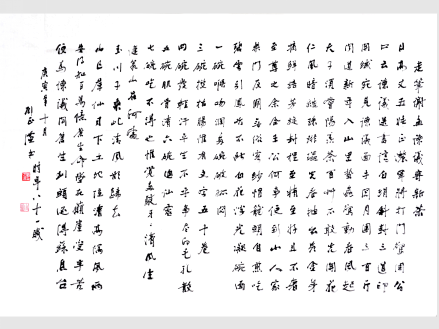 走筆謝孟諫議寄新茶
日高丈五睡正濃軍將打門驚周公
口云諫議送書信白絹斜封三道印
開緘宛見諫議面手閱月團三百片
聞道新年入山里蟄蟲驚動春風起
天子須嘗陽羨茶百草不敢先開花
仁風暗結珠琲瓃先春抽出黃金芽
摘鮮焙芳旋封裹至精至好且不奢
至尊之餘合王公何事便到山人家
柴門反關無俗客紗帽籠頭自煎吃
碧雲引風吹不斷白花浮光凝碗面
一碗喉吻潤兩碗破孤悶
三碗搜枯腸唯有文字五千卷
四碗發輕汗平生不平事盡向毛孔散
五碗肌骨清六碗通仙靈
七碗吃不得也惟覺兩腋習習清風生
蓬萊山在何處
玉川子乘此清風欲歸去
山上群仙司下土地位清高隔風雨
安得知百萬億蒼生命墮在巔崖受辛苦
便為諫議問蒼生到頭還得蘇息否
庚寅年十月
时年八十一歲